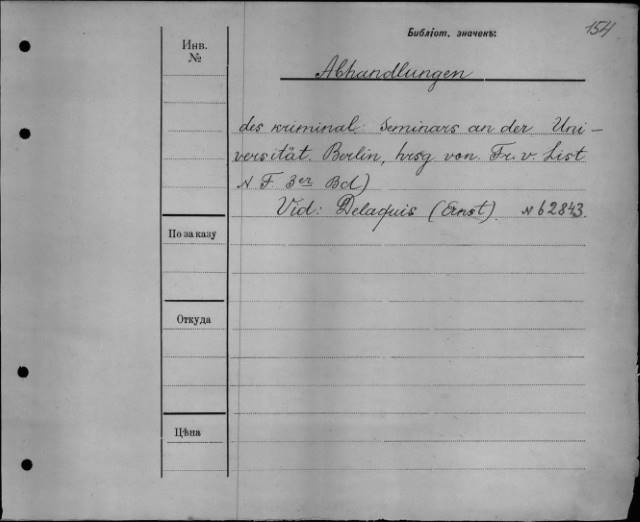 Библіот. значекъ: 154
Инв.
№
Abhandlungen
des kriminal. Seminars an der Uni-
versität. Berlin, hrsg von. Fr. v. List
N F. 3er Bd)
Vid: Delaquis (Ernst). N 62843.
По заказу
Откуда
Цѣна